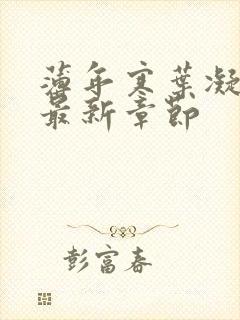 薄年寒叶凝
最新章节
彭富春